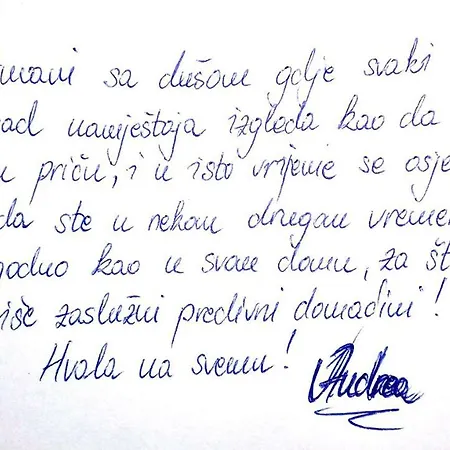 sa dušom gdje svaki
namještaja izgleda kao da
priču, i u isto vrijeme se osje
da ste u nekom drugom vremen
godno kao u svom domu, za št
iše zaslužni predivni domaćini!
Hvala na svemu!
Andrea